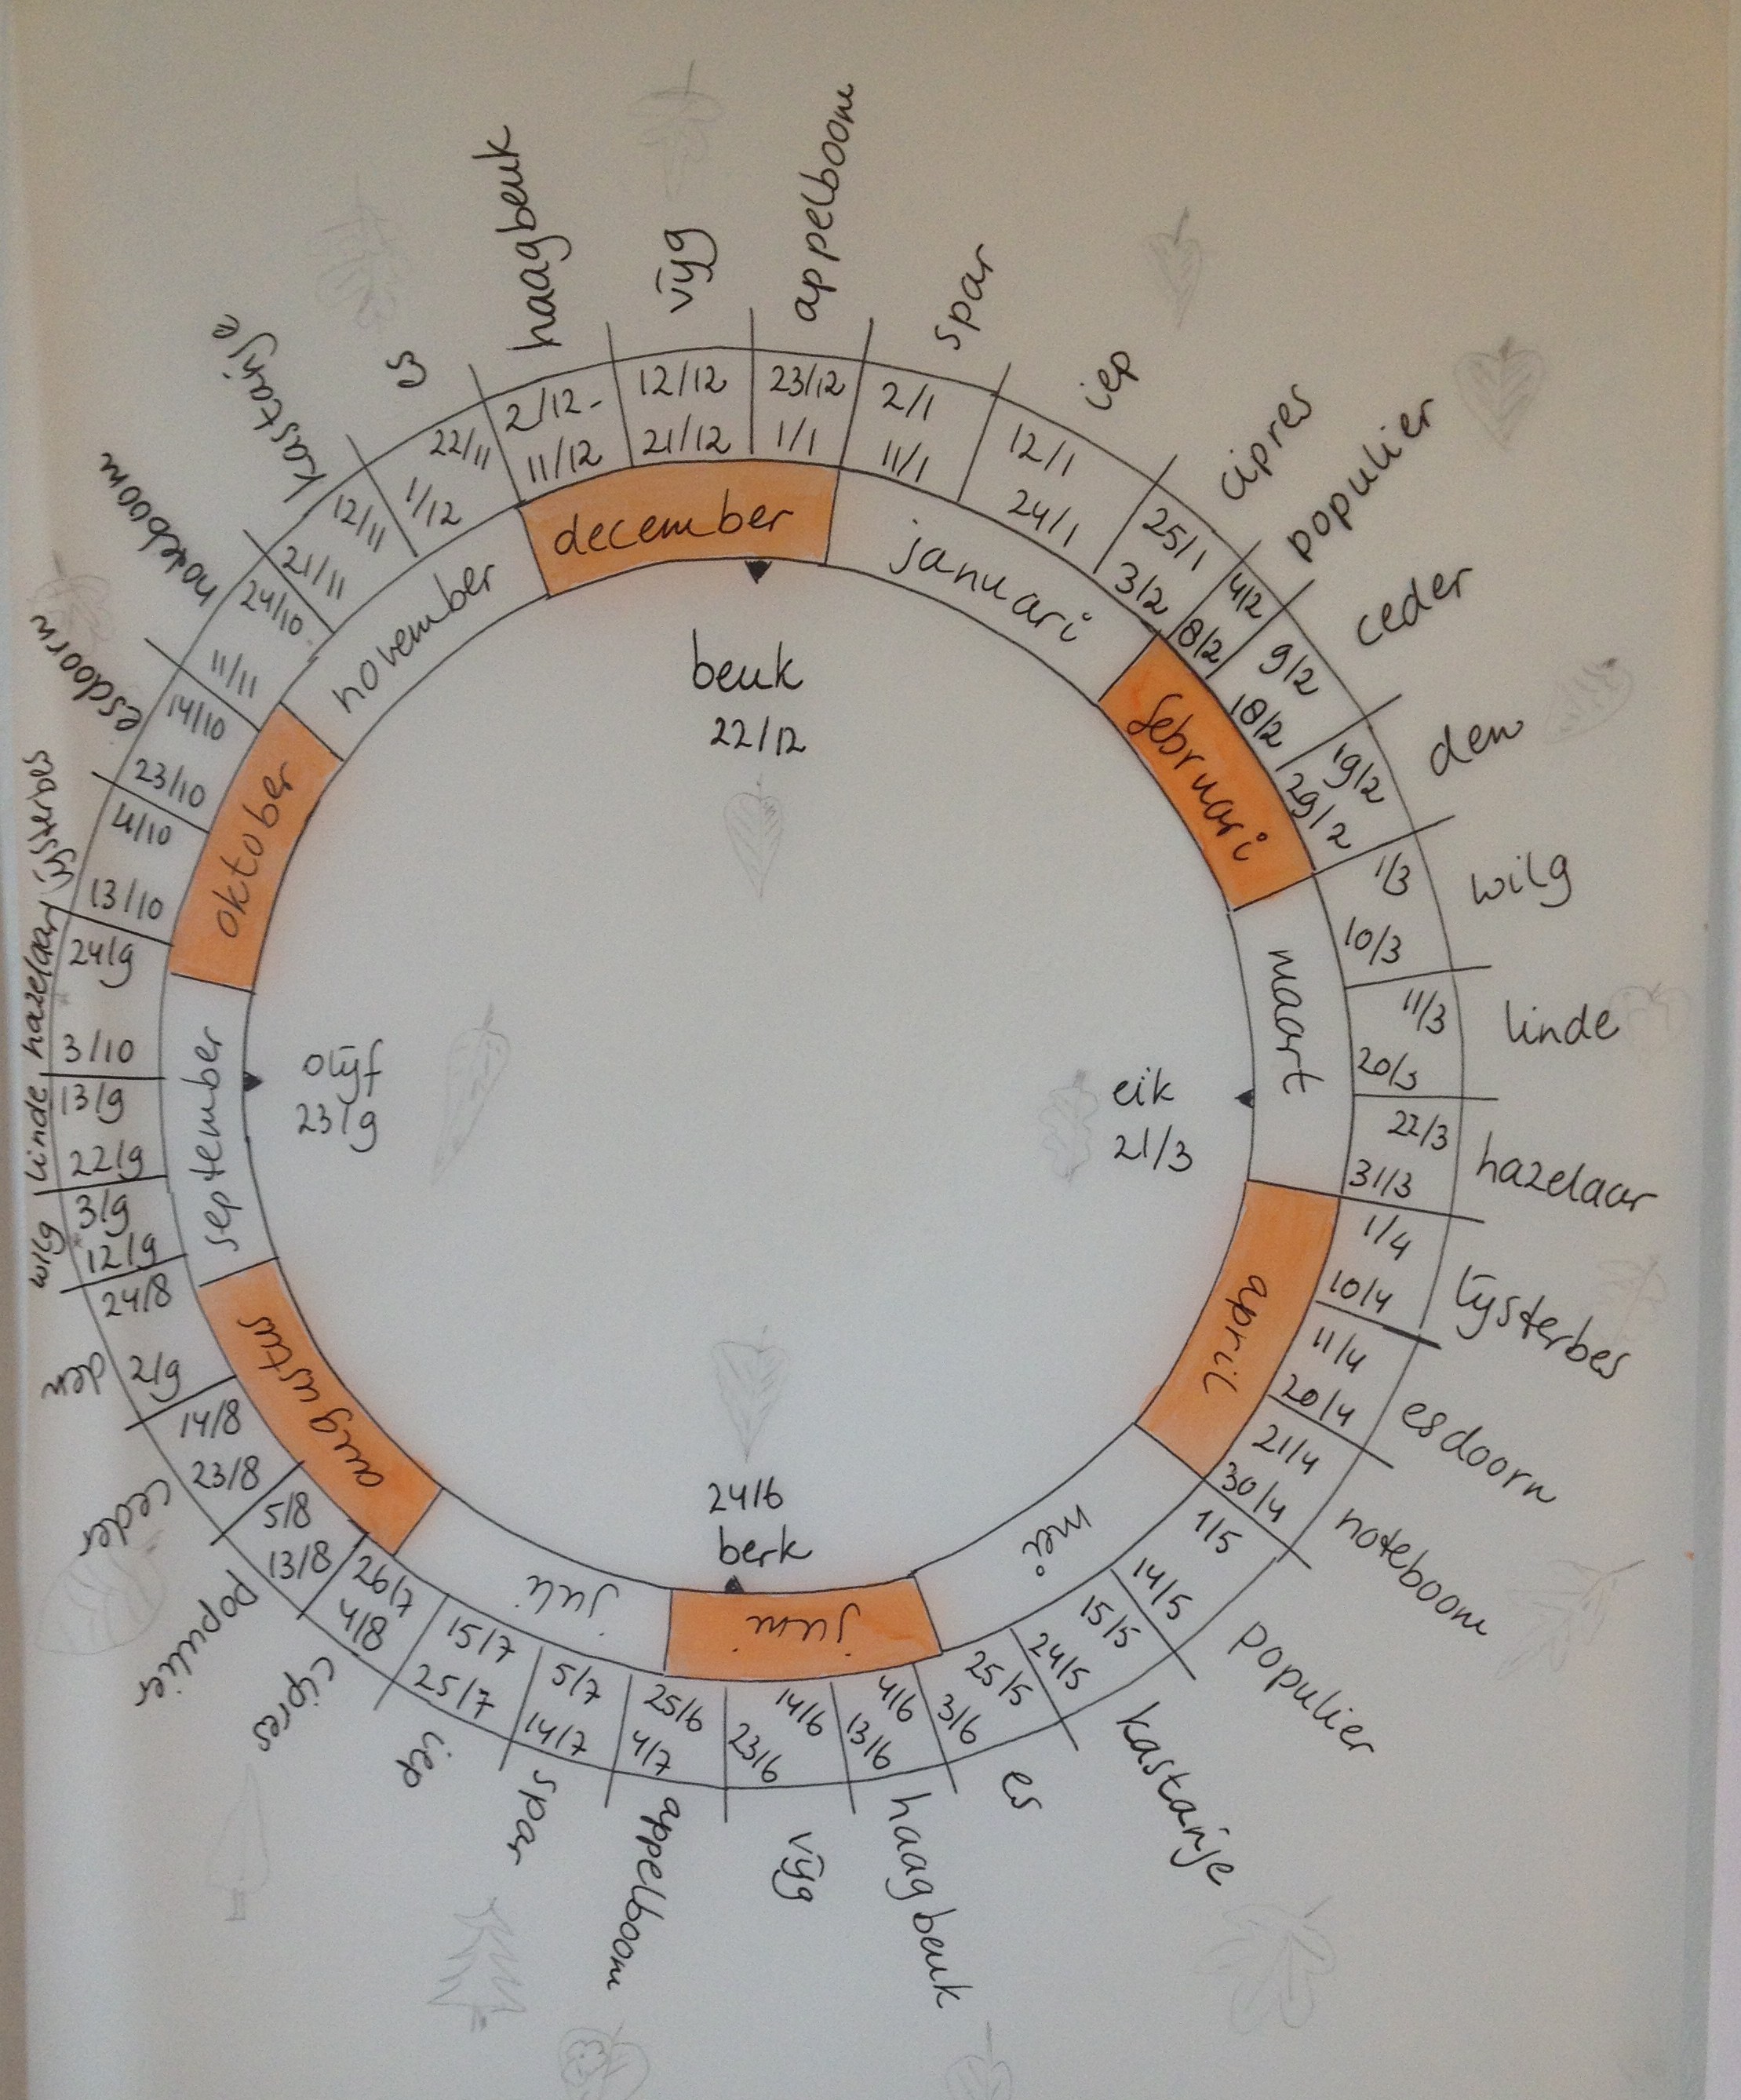 december
januari
februari
maart
april
mei
juni
juli
augustus
september
oktober
november
beuk
22/12
eik
21/3
24/6
berk
olijf
23/9
appelboom
23/12
1/1
spar
2/1
11/1
iep
12/1
24/1
cipres
25/1
3/2
populier
4/2
8/2
ceder
9/2
18/2
den
19/2
29/2
wilg
1/3
10/3
linde
11/3
20/3
hazelaar
22/3
31/3
lijsterbes
1/4
10/4
esdoorn
11/4
20/4
noteboom
21/4
30/4
populier
1/5
14/5
kastanje
15/5
24/5
es
25/5
3/6
haagbeuk
4/6
13/6
vijg
14/6
23/6
appelboom
25/6
4/7
spar
5/7
14/7
iep
15/7
25/7
cipres
26/7
4/8
populier
5/8
13/8
ceder
14/8
23/8
den
24/8
2/9
wilg
3/9
12/9
linde
13/9
22/9
hazelaar
24/9
3/10
lijsterbes
4/10
13/10
esdoorn
14/10
23/10
noteboom
24/10
11/11
kastanje
12/11
21/11
es
22/11
1/12
haagbeuk
2/12-
11/12
vijg
12/12
21/12